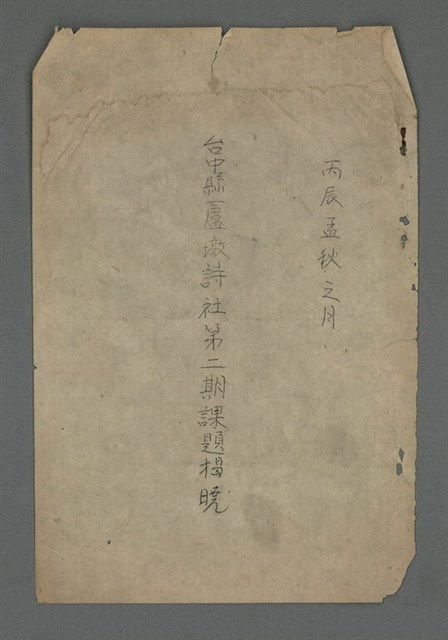 丙辰孟秋之月
台中縣蘆墩詩社第二期課題揭曉